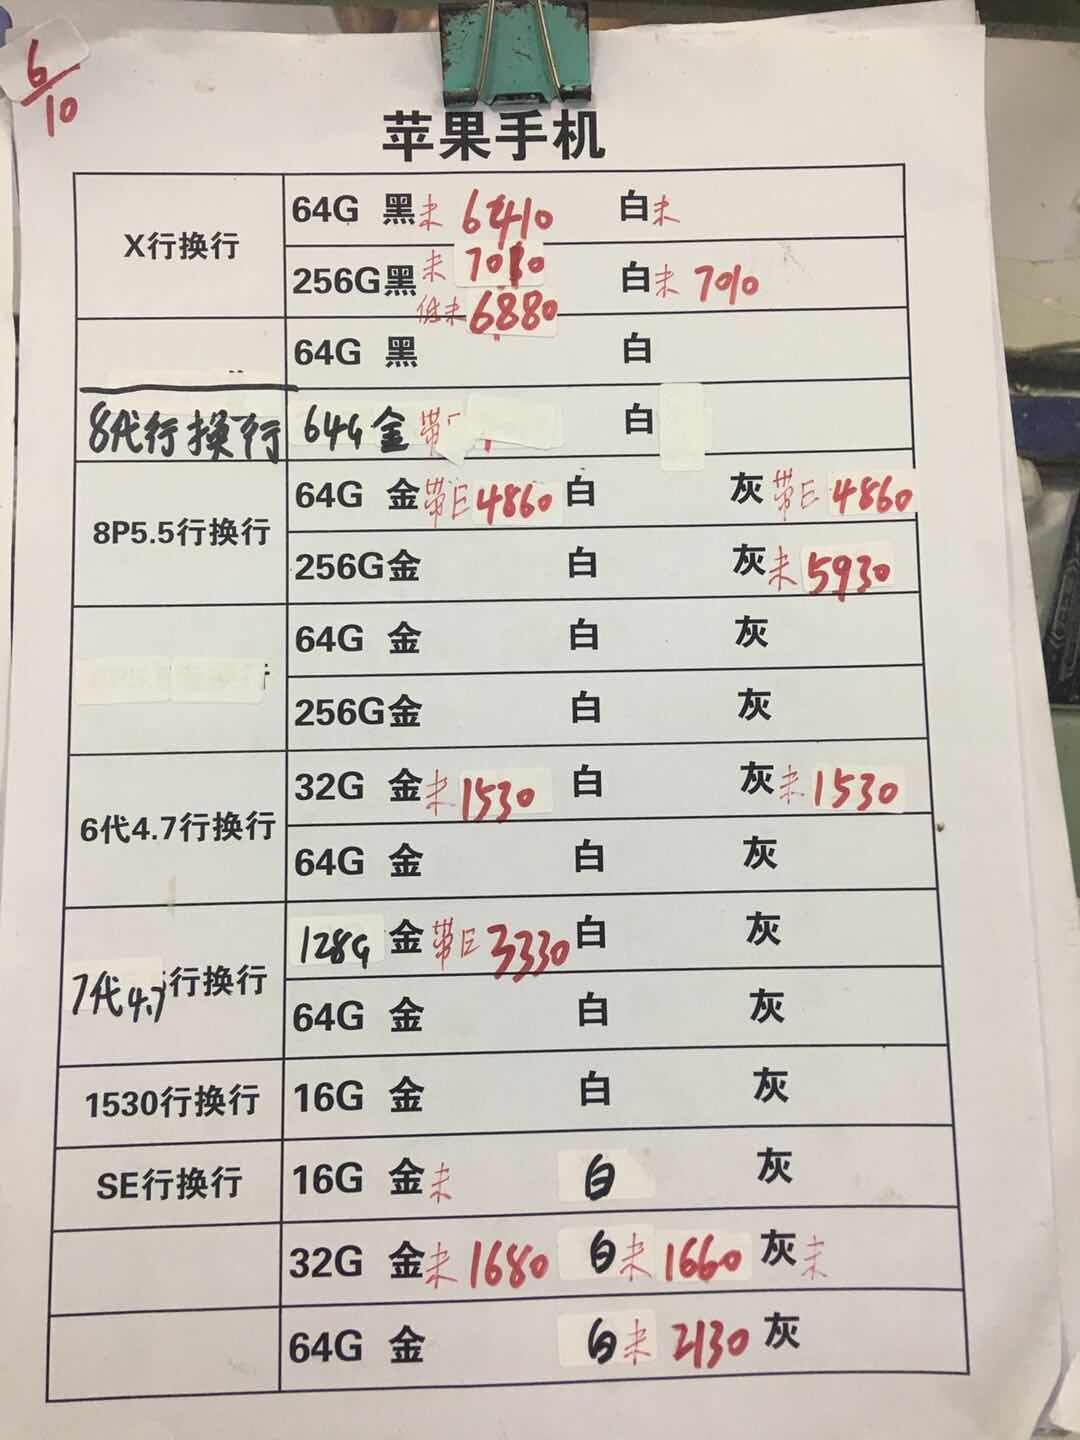 6/10
苹果手机
X行换行 64G 黑未 6410 白未
256G黑未 7010 白未 7010
低未 6880
64G 黑 白
8代行换行 64G 金带 白
8P5.5行换行 64G 金带日4860 白 灰带日4860
256G金 白 灰未5930
64G 金 白 灰
256G金 白 灰
6代4.7行换行 32G 金未1530 白 灰未1530
64G 金 白 灰
7代4.7行换行 128G 金带日3330 白 灰
64G 金 白 灰
1530行换行 16G 金 白 灰
SE行换行 16G 金未 白 灰
32G 金未1680 白未1660 灰未
64G 金 白未2130 灰